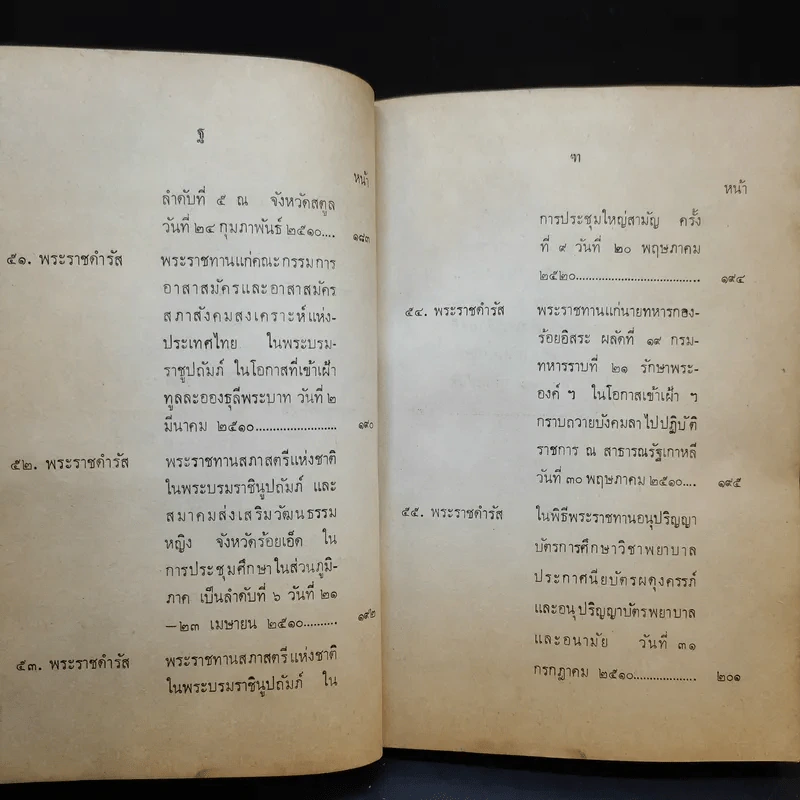 ฐ
หน้า
ลำดับที่ ๕ ณ จังหวัดสตูล
วันที่ ๒๔ กุมภาพันธ์ ๒๕๑๐.... ๑๘๓
๕๑. พระราชดำรัส พระราชทานแก่คณะกรรมการ
อาสาสมัครและอาสาสมัคร
สภาสังคมสงเคราะห์แห่ง-
ประเทศไทย ในพระบรม-
ราชูปถัมภ์ ในโอกาสที่เข้าเฝ้า
ทูลละอองธุลีพระบาท วันที่ ๒
มีนาคม ๒๕๑๐........................ ๑๙๐
๕๒. พระราชดำรัส พระราชทานสภาสตรีแห่งชาติ
ในพระบรมราชินูปถัมภ์ และ
สมาคมส่งเสริมวัฒนธรรม
หญิง จังหวัดร้อยเอ็ด ใน
การประชุมศึกษาในส่วนภูมิ-
ภาค เป็นลำดับที่ ๖ วันที่ ๒๑
—๒๓ เมษายน ๒๕๑๐.......... ๑๙๒
๕๓. พระราชดำรัส พระราชทานสภาสตรีแห่งชาติ
ในพระบรมราชินูปถัมภ์ ใน
ฑ
หน้า
การประชุมใหญ่สามัญ ครั้ง
ที่ ๙ วันที่ ๒๐ พฤษภาคม
๒๕๒๐..................................... ๑๙๔
๕๔. พระราชดำรัส พระราชทานแก่นายทหารกอง-
ร้อยอิสระ ผลัดที่ ๑๙ กรม-
ทหารราบที่ ๒๑ รักษาพระ-
องค์ ฯ ในโอกาสเข้าเฝ้า ฯ
กราบถวายบังคมลาไปปฏิบัติ
ราชการ ณ สาธารณรัฐเกาหลี
วันที่ ๓๐ พฤษภาคม ๒๕๑๐.... ๑๙๕
๕๕. พระราชดำรัส ในพิธีพระราชทานอนุปริญญา
บัตรการศึกษาวิชาพยาบาล
ประกาศนียบัตรผดุงครรภ์
และอนุปริญญาบัตรพยาบาล
และอนามัย วันที่ ๓๑
กรกฎาคม ๒๕๑๐................... ๒๐๑